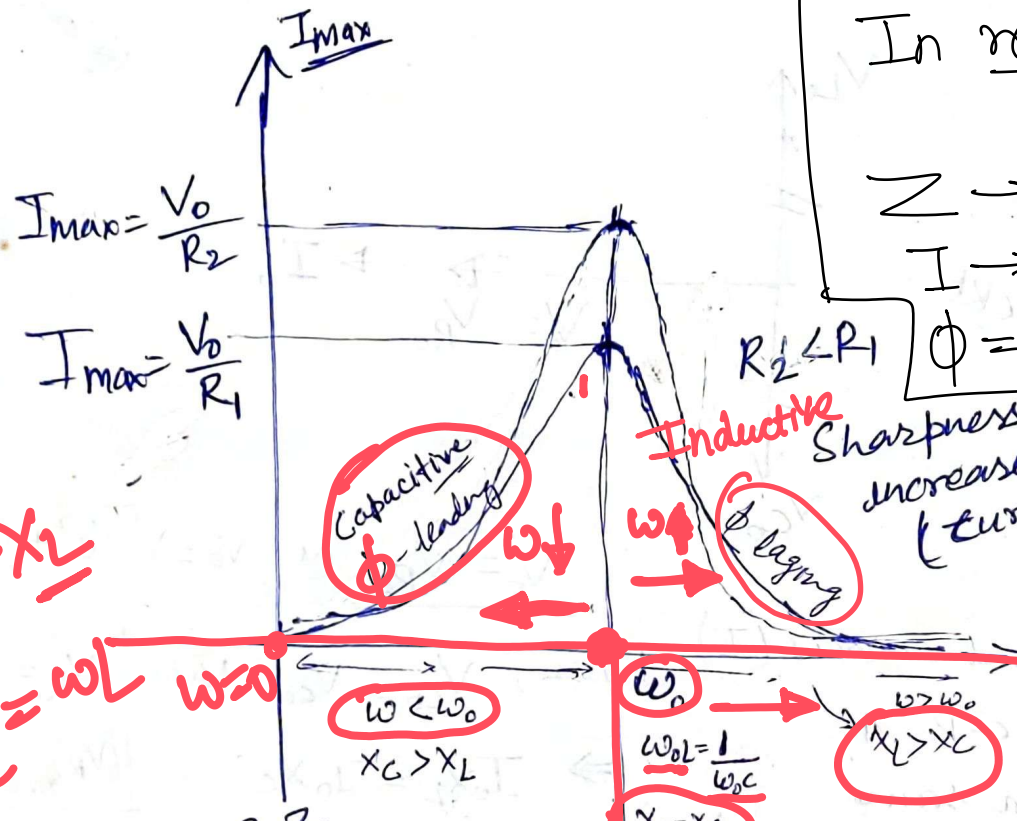 Imax
In
Imax = V0/R2
Z →
I →
Imax = V0/R1
R2 < R1
φ =
Inductive
Sharpness
increase
Capacitive
φ - leading
ω↓
ω↑
φ lagging
X2
= ωL
ω=0
ω < ω0
XC > XL
ω0
ω0L = 1/ω0C
ω > ω0
XL > XC